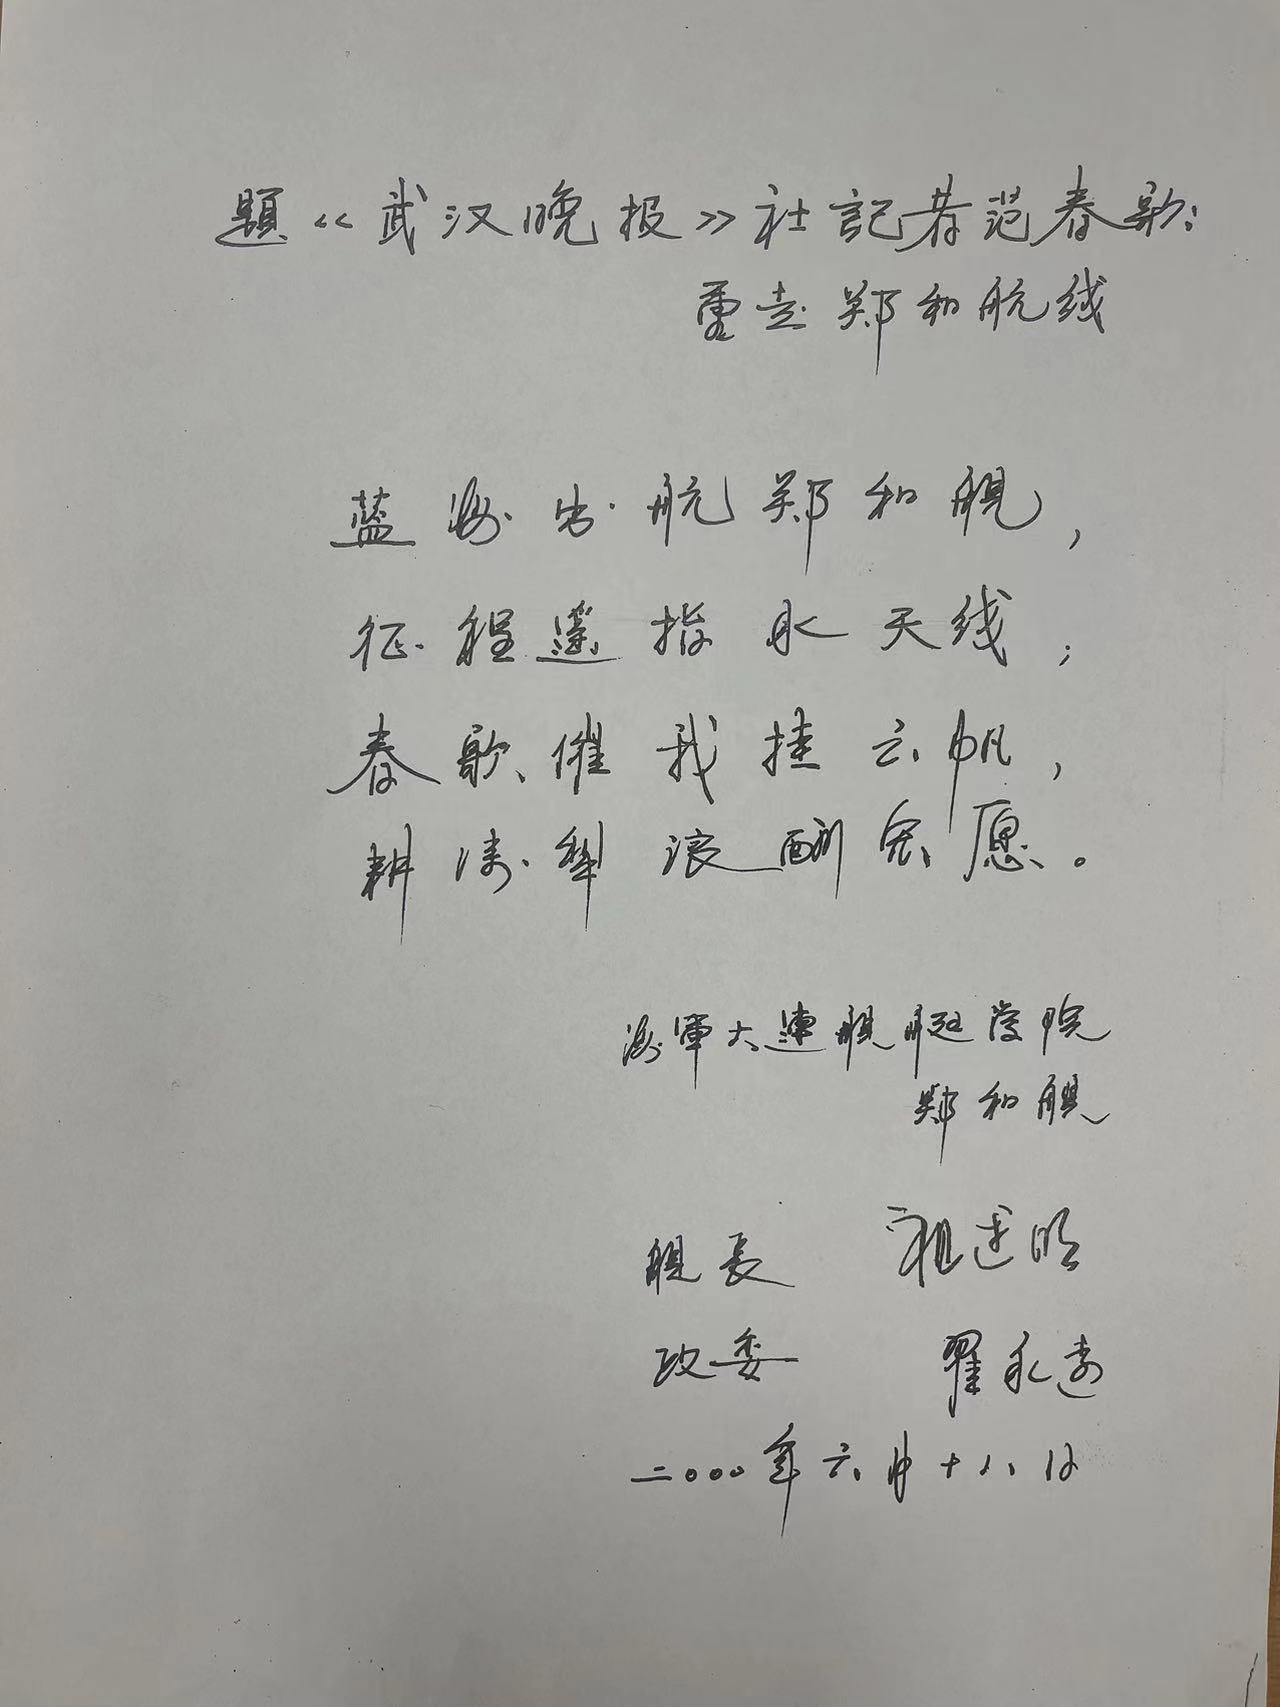 題《武汉晚报》社記者范春歌:
重走郑和航线
蓝海出航郑和舰,
征程遥指水天线;
春歌催我挂云帆,
耕涛犁浪酬宏愿。
海軍大連舰艇学院
郑和舰
舰長 祖述明
政委 翟永远
二〇〇〇年六月十八日